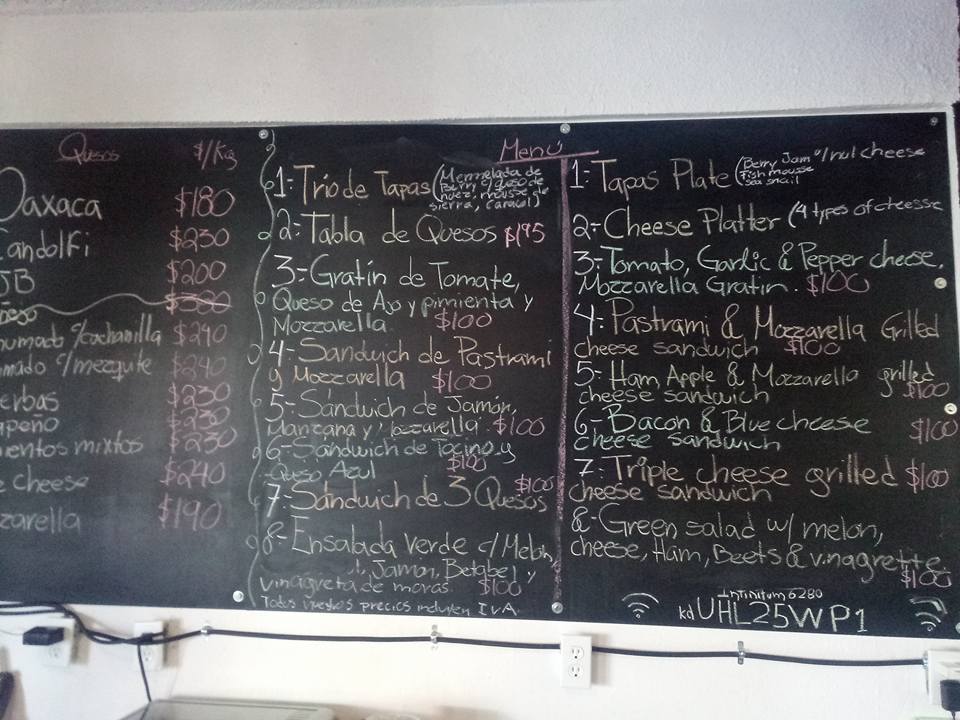 Quesos $/Kg
Oaxaca $180
Landolfi $230
JB $200
$300
c/cochinilla $240
c/mezquite $240
$230
$230
mixtos $230
cheese $240
$190
Menú
1-Trío de Tapas (Mermelada de
Berry c/queso de
nuez, mousse de
sierra, caracol)
2-Tabla de Quesos $195
3-Gratín de Tomate,
Queso de Ajo y pimienta y
Mozzarella $100
4-Sandwich de Pastrami
y Mozzarella $100
5-Sandwich de Jamón,
Manzana y Mozzarella $100
6-Sandwich de Tocino y
Queso Azul $100
7-Sandwich de 3 Quesos $100
8-Ensalada Verde c/Melon,
Jamon, Betabel y
vinagreta de moras $100
Todos nuestros precios incluyen IVA
1-Tapas Plate (Berry Jam w/nut cheese
Fish mousse
Sea snail
2-Cheese Platter (4 types of cheesse
3-Tomato, Garlic & Pepper cheese,
Mozzarella Gratin. $100
4-Pastrami & Mozzarella Grilled
cheese sandwich $100
5-Ham Apple & Mozzarella grilled
cheese sandwich $100
6-Bacon & Blue cheese
cheese sandwich $100
7-Triple cheese grilled
cheese sandwich $100
8-Green salad w/ melon,
cheese, Ham, Beets & vinagrette
$100
Infinitum 6280
kdUHL25WP1